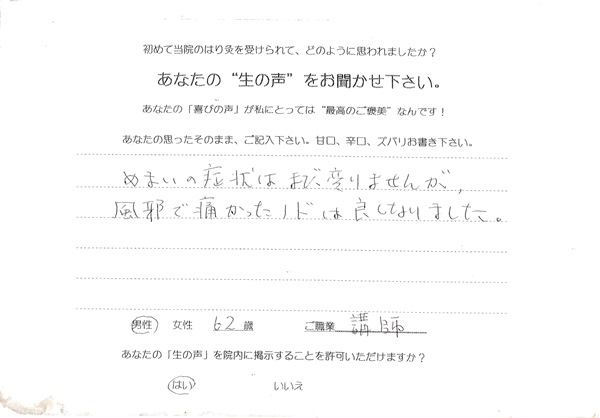 初めて当院のはり灸を受けられて、どのように思われましたか？
あなたの“生の声”をお聞かせ下さい。
あなたの「喜びの声」が私にとっては“最高のご褒美”なんです！
あなたの思ったそのまま、ご記入下さい。甘口、辛口、ズバリお書き下さい。
めまいの症状はまだ変りませんが、
風邪で痛かったノドは良くなりました。
男性 女性 62歳 ご職業 講師
あなたの「生の声」を院内に掲示することを許可いただけますか？
はい いいえ